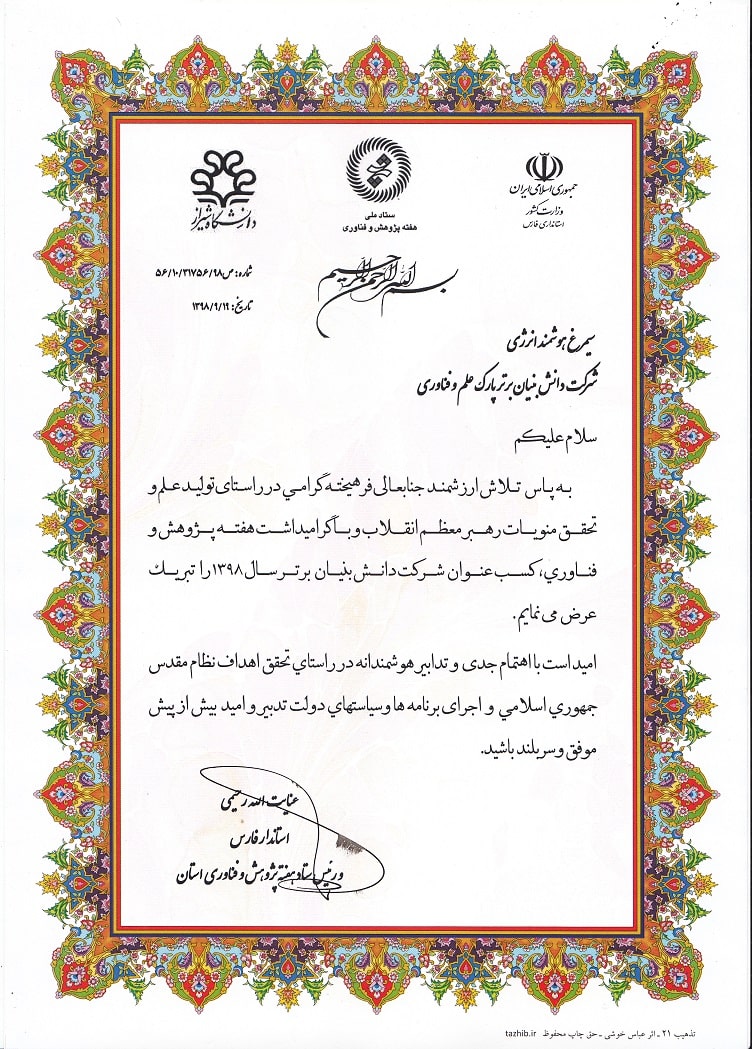 جمهوری اسلامی ایران
وزارت کشور
استانداری فارس
ستاد ملی
هفته پژوهش و فناوری
دانشگاه شیراز
بسم الله الرحمن الرحیم
شماره: ص۵۶/۱۰/۳۱۷۵۶/۹۸
تاریخ: ۱۳۹۸/۹/۱۹
سیمرغ هوشمند انرژی
شرکت دانش بنیان برتر پارک علم و فناوری
سلام علیکم
به پاس تلاش ارزشمند جنابعالی فرهیخته گرامي در راستای تولید علم و
تحقق منویات رهبر معظم انقلاب و با گرامیداشت هفته پژوهش و
فناوري، کسب عنوان شرکت دانش بنیان برتر سال ۱۳۹۸ را تبریك
عرض می نمایم.
امید است با اهتمام جدی و تدابیر هوشمندانه در راستاي تحقق اهداف نظام مقدس
جمهوري اسلامي و اجرای برنامه ها و سیاستهاي دولت تدبیر و امید بیش از پیش
موفق و سربلند باشید.
عنایت الله رحیمی
استاندار فارس
و رئیس ستاد هفته پژوهش و فناوری استان
تذهیب ۲۱ ـ اثر عباس خوشی ـ حق چاپ محفوظ tazhib.ir